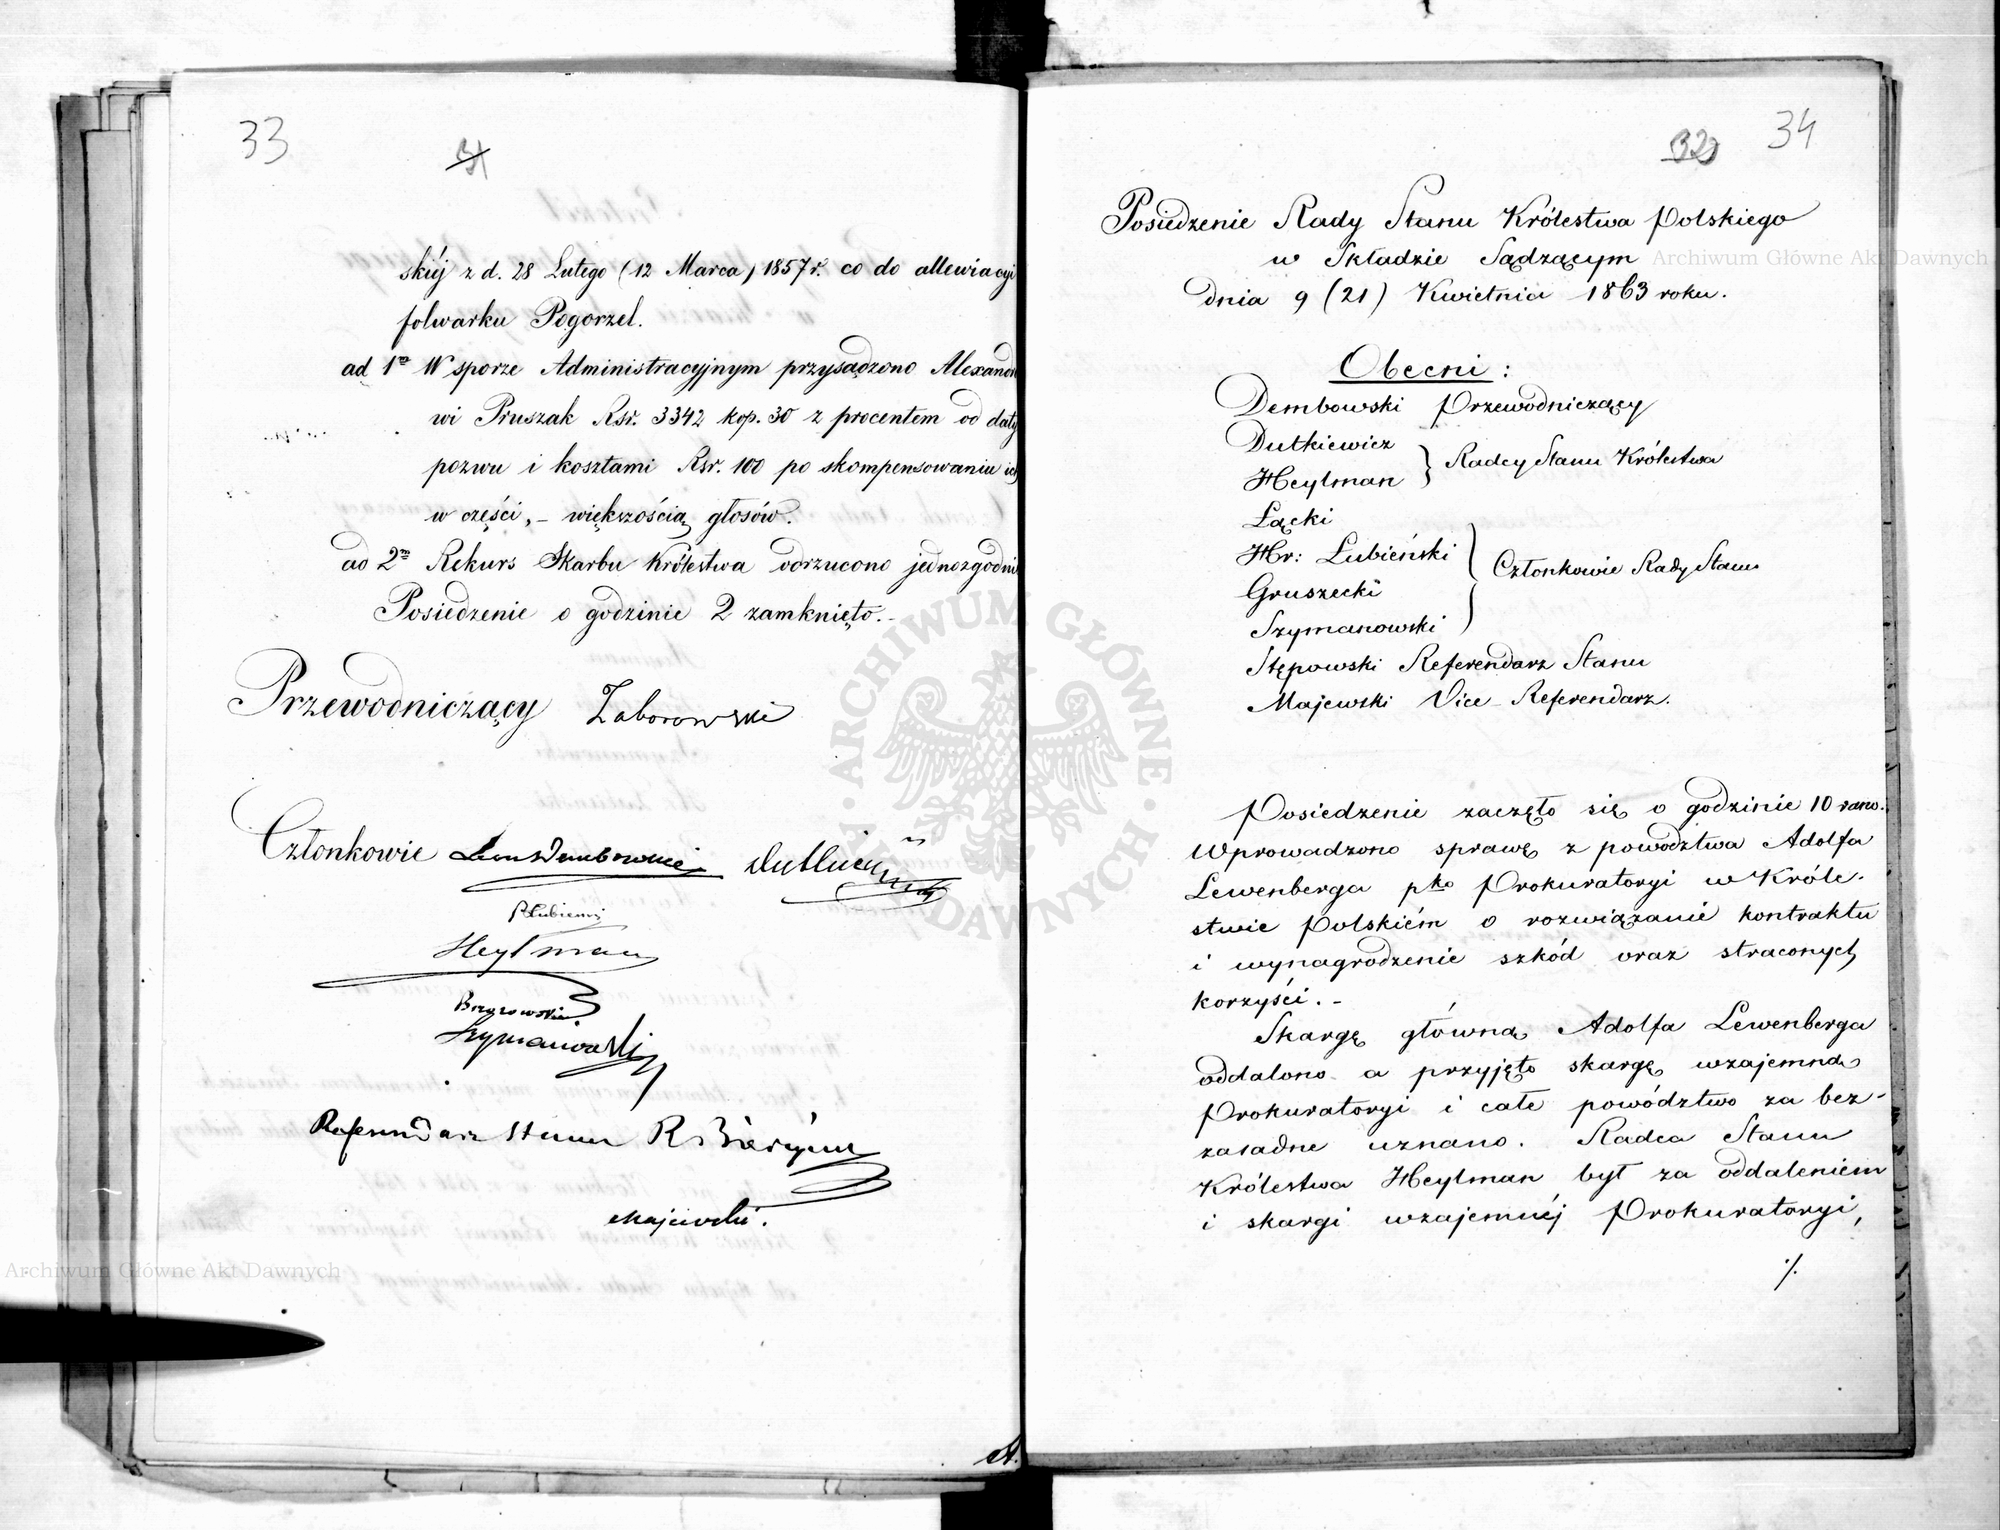 33
31
skiéj z d. 28 Lutego (12 Marca) 1857 r. co do allewiacyi
folwarku Pogorzel.
ad 1º W sporze Administracyjnym przysądzono Alexandro
wi Pruszak Rsr. 3342 kop. 30 z procentem od daty
pozwu i kosztami Rsr. 100 po skompensowaniu ich
w części, – większością głosów.
ad 2m Rekurs Skarbu Królestwa odrzucono jednozgodnie
Posiedzenie o godzinie 2 zamknięto. –
Przewodniczący Zaborowski
Członkowie Leon Dembowski Dutkiewicz
Łubieński
Heylman
Brzozowski
Szymanowski
Referendarz Stanu
Majewski.
34
32
Posiedzenie Rady Stanu Królestwa Polskiego
w Składzie Sądzącym
dnia 9 (21) Kwietnia 1863 roku.
Obecni :
Dembowski Przewodniczący
Dutkiewicz
Heylman } Radcy Stanu Królestwa
Łącki
Hr: Łubieński
Gruszecki } Członkowie Rady Stanu
Szymanowski
Stępowski Referendarz Stanu
Majewski Vice – Referendarz.
Posiedzenie zaczęło się o godzinie 10 rano.
Wprowadzono sprawę z powództwa Adolfa
Lewenberga pko Prokuratoryi w Króle-
stwie Polskiém o rozwiązanie kontraktu
i wynagrodzenie szkód oraz straconych
korzyści. –
Skargę główną Adolfa Lewenberga
oddalono a przyjęto skargę wzajemną
Prokuratoryi i całe powództwo za bez-
zasadne uznano. Radca Stanu
Królestwa Heylman był za oddaleniem
i skargi wzajemnéj Prokuratoryi,
./.
Archiwum Główne Akt Dawnych
Archiwum Główne Akt Dawnych
ARCHIWUM GŁÓWNE AKT DAWNYCH